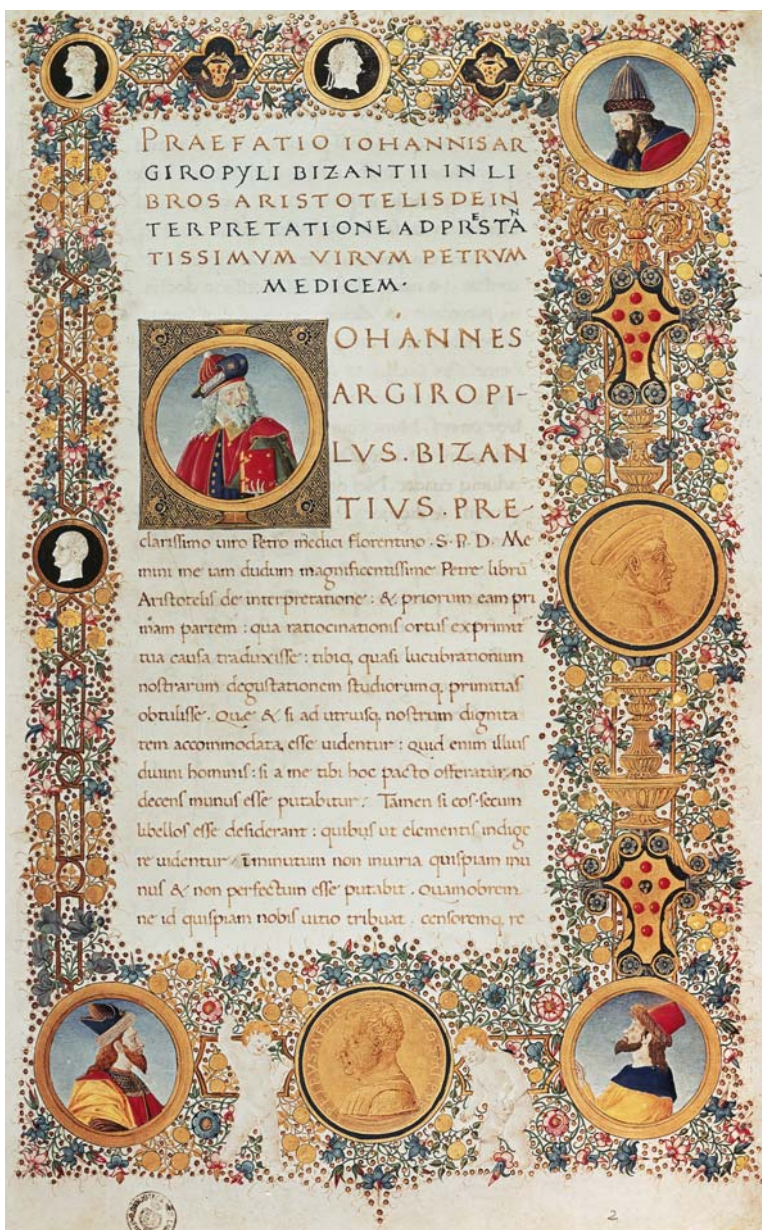 PRAEFATIO IOHANNIS AR
GIROPYLI BIZANTII IN LI
BROS ARISTOTELIS DE IN
TERPRETATIONE AD PRESTAN
TISSIMVM VIRVM PETRVM
MEDICEM·
OHANNES
ARGIROPI-
LVS. BIZAN
TIVS. PRE-
clarissimo uiro Petro medici florentino. S. P. D. Me
mini me iam dudum magnificentissime Petre librū
Aristotelis de interpretatione: & priorum eam pri
mam partem: qua ratiocinationis ortus exprimit
tua causa traduxisse: tibiq, quasi lucubrationum
nostrarum degustationem studiorumq, primitias
obtulisse. Que & si ad utriusq, nostrum dignita
tem accommodata esse uidentur: quid enim illius
diuini hominis: si a me tibi hoc pacto offeratur nō
decens munus esse putabitur. Tamen si eos secum
libellos esse desiderant: quibus ut elementis indige
re uidentur iminutum non iniuria quispiam mu
nus & non perfectum esse putabit. Quamobrem
ne id quispiam nobis uitio tribuat. censoremq, re
2